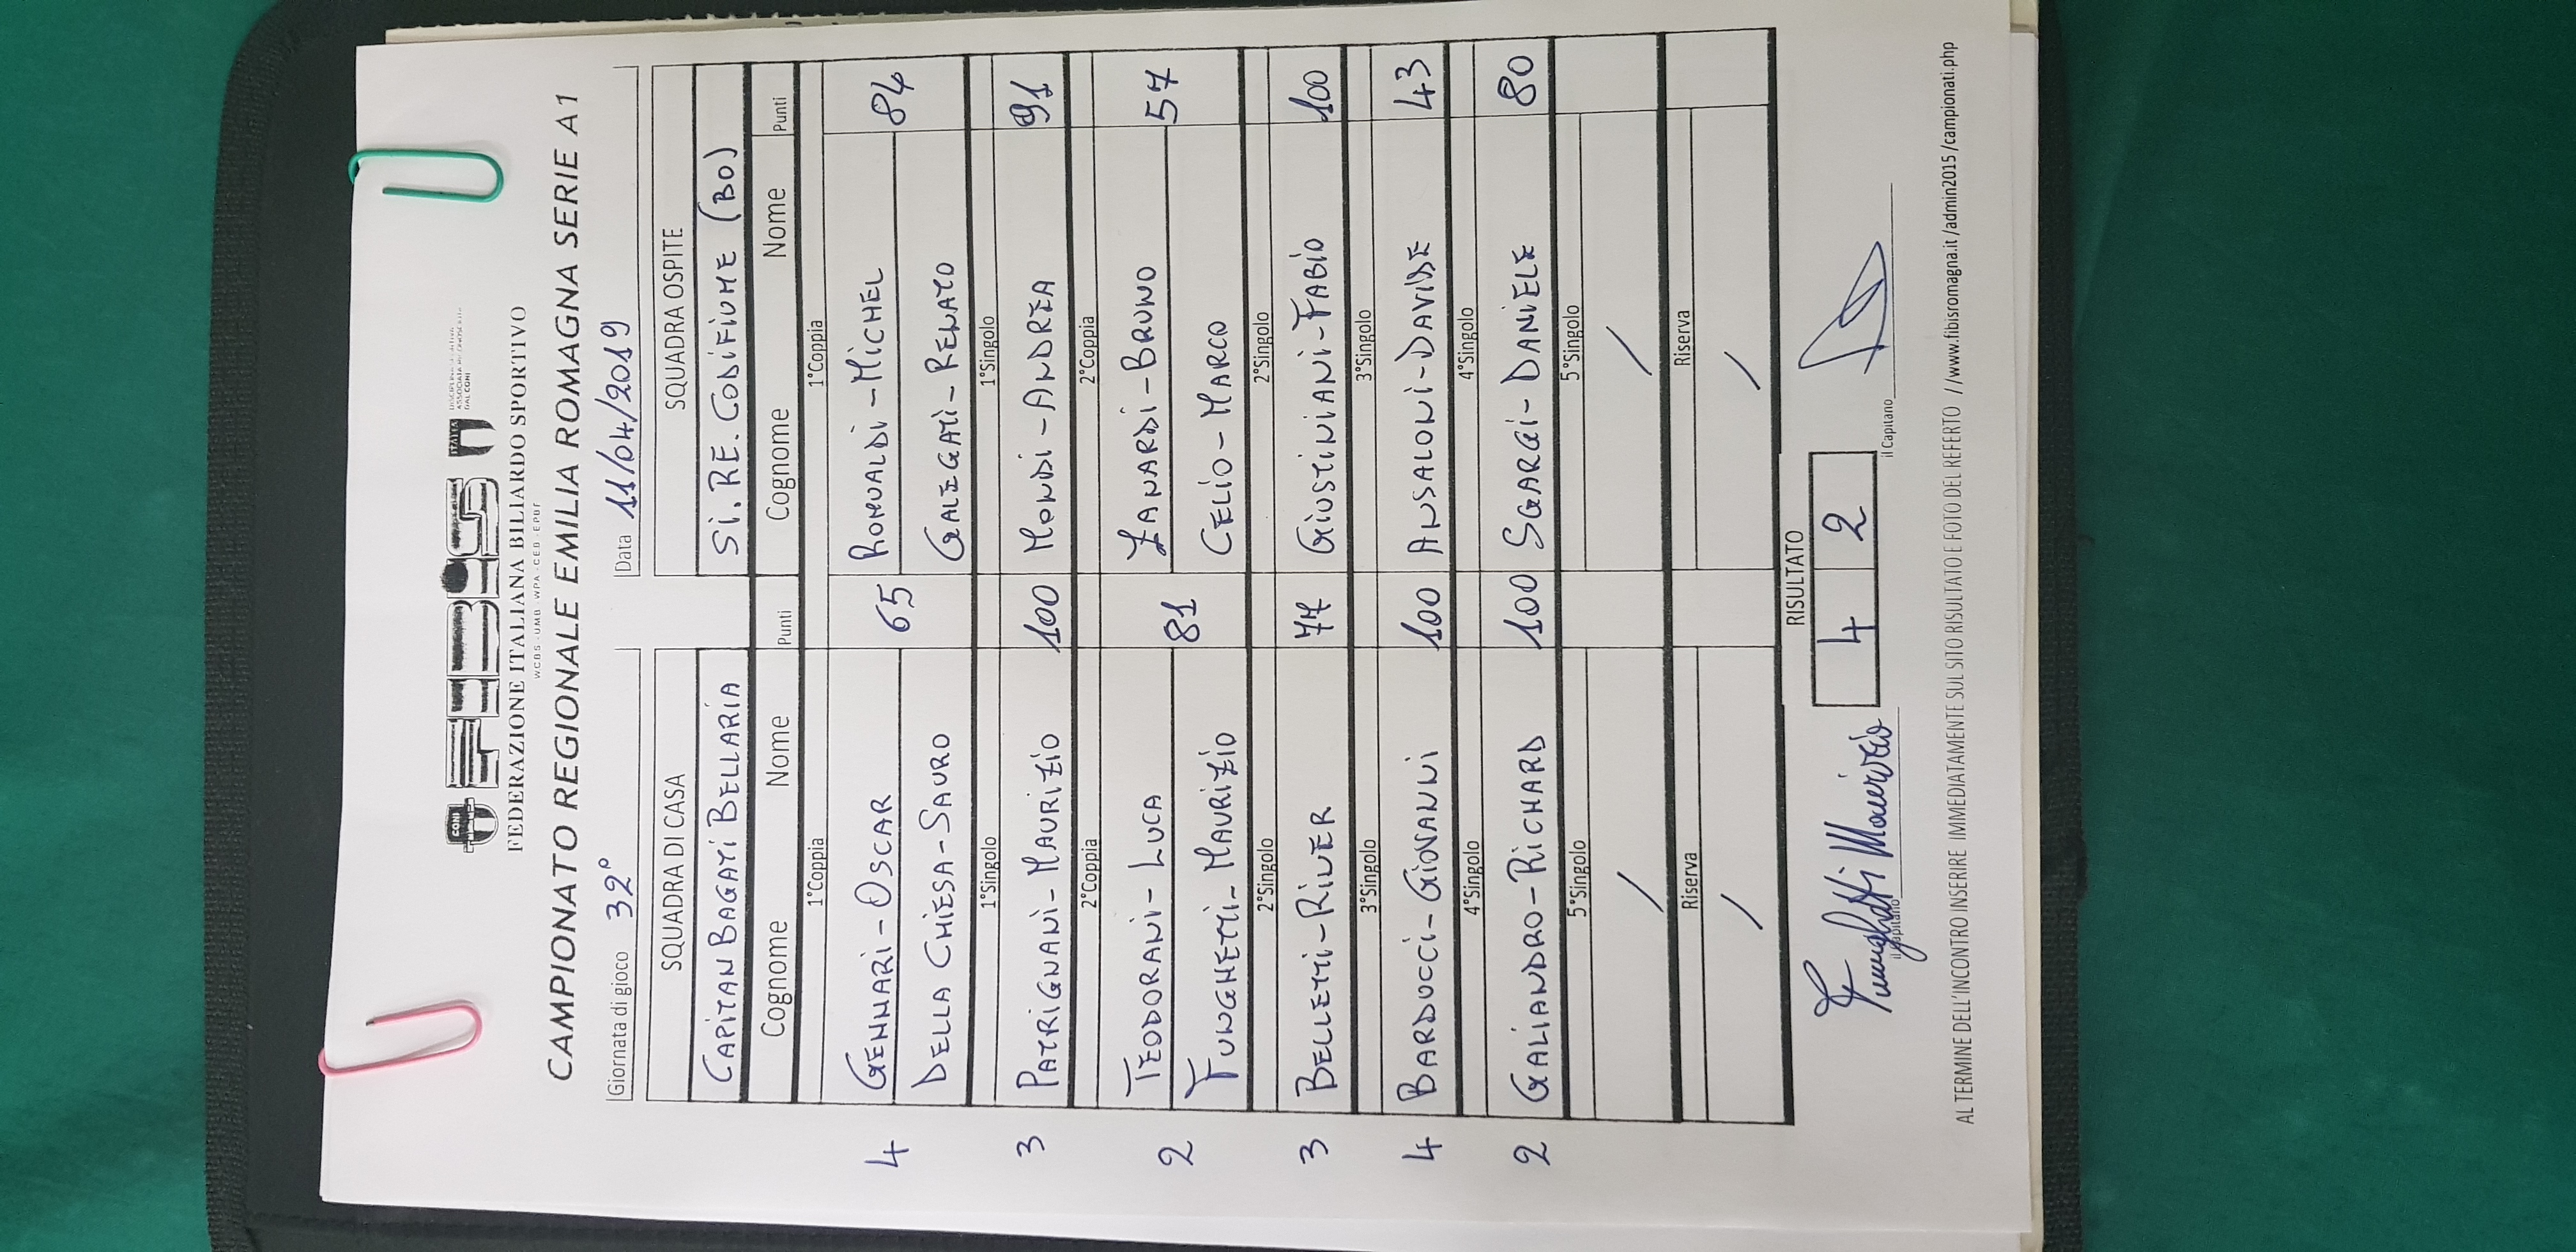 CONI
FIBiS
ITALIA
DISCIPLINA SPORTIVA
ASSOCIATA RICONOSCIUTA
DAL CONI
FEDERAZIONE ITALIANA BILIARDO SPORTIVO
WCBS - UMB - WPA - CEB - EPBF
CAMPIONATO REGIONALE EMILIA ROMAGNA SERIE A1
Giornata di gioco 32° Data 11/04/2019
SQUADRA DI CASA SQUADRA OSPITE
CAPITAN BAGATI BELLARIA SI.RE. CODIFIUME (BO)
Cognome Nome Punti Cognome Nome Punti
1°Coppia 1°Coppia
4 GENNARI - OSCAR 65 ROMUALDI - MICHEL 84
DELLA CHIESA - SAURO GALEGATI - RENATO
1°Singolo 1°Singolo
3 PATRIGNANI - MAURIZIO 100 MONDI - ANDREA 91
2°Coppia 2°Coppia
2 TEODORANI - LUCA 81 ZANARDI - BRUNO 57
FUNGHETTI - MAURIZIO CELIO - MARCO
2°Singolo 2°Singolo
3 BELLETTI - RIVER 77 GIUSTINIANI - FABIO 100
3°Singolo 3°Singolo
4 BARDUCCI - GIOVANNI 100 ANSALONI - DAVIDE 43
4°Singolo 4°Singolo
2 GALIANDRO - RICHARD 100 SGARGI - DANIELE 80
5°Singolo 5°Singolo
/ /
Riserva Riserva
/ /
RISULTATO
4 2
il Capitano Funghetti Maurizio il Capitano
AL TERMINE DELL'INCONTRO INSERIRE IMMEDIATAMENTE SUL SITO RISULTATO E FOTO DEL REFERTO //www.fibisromagna.it/admin2015/campionati.php